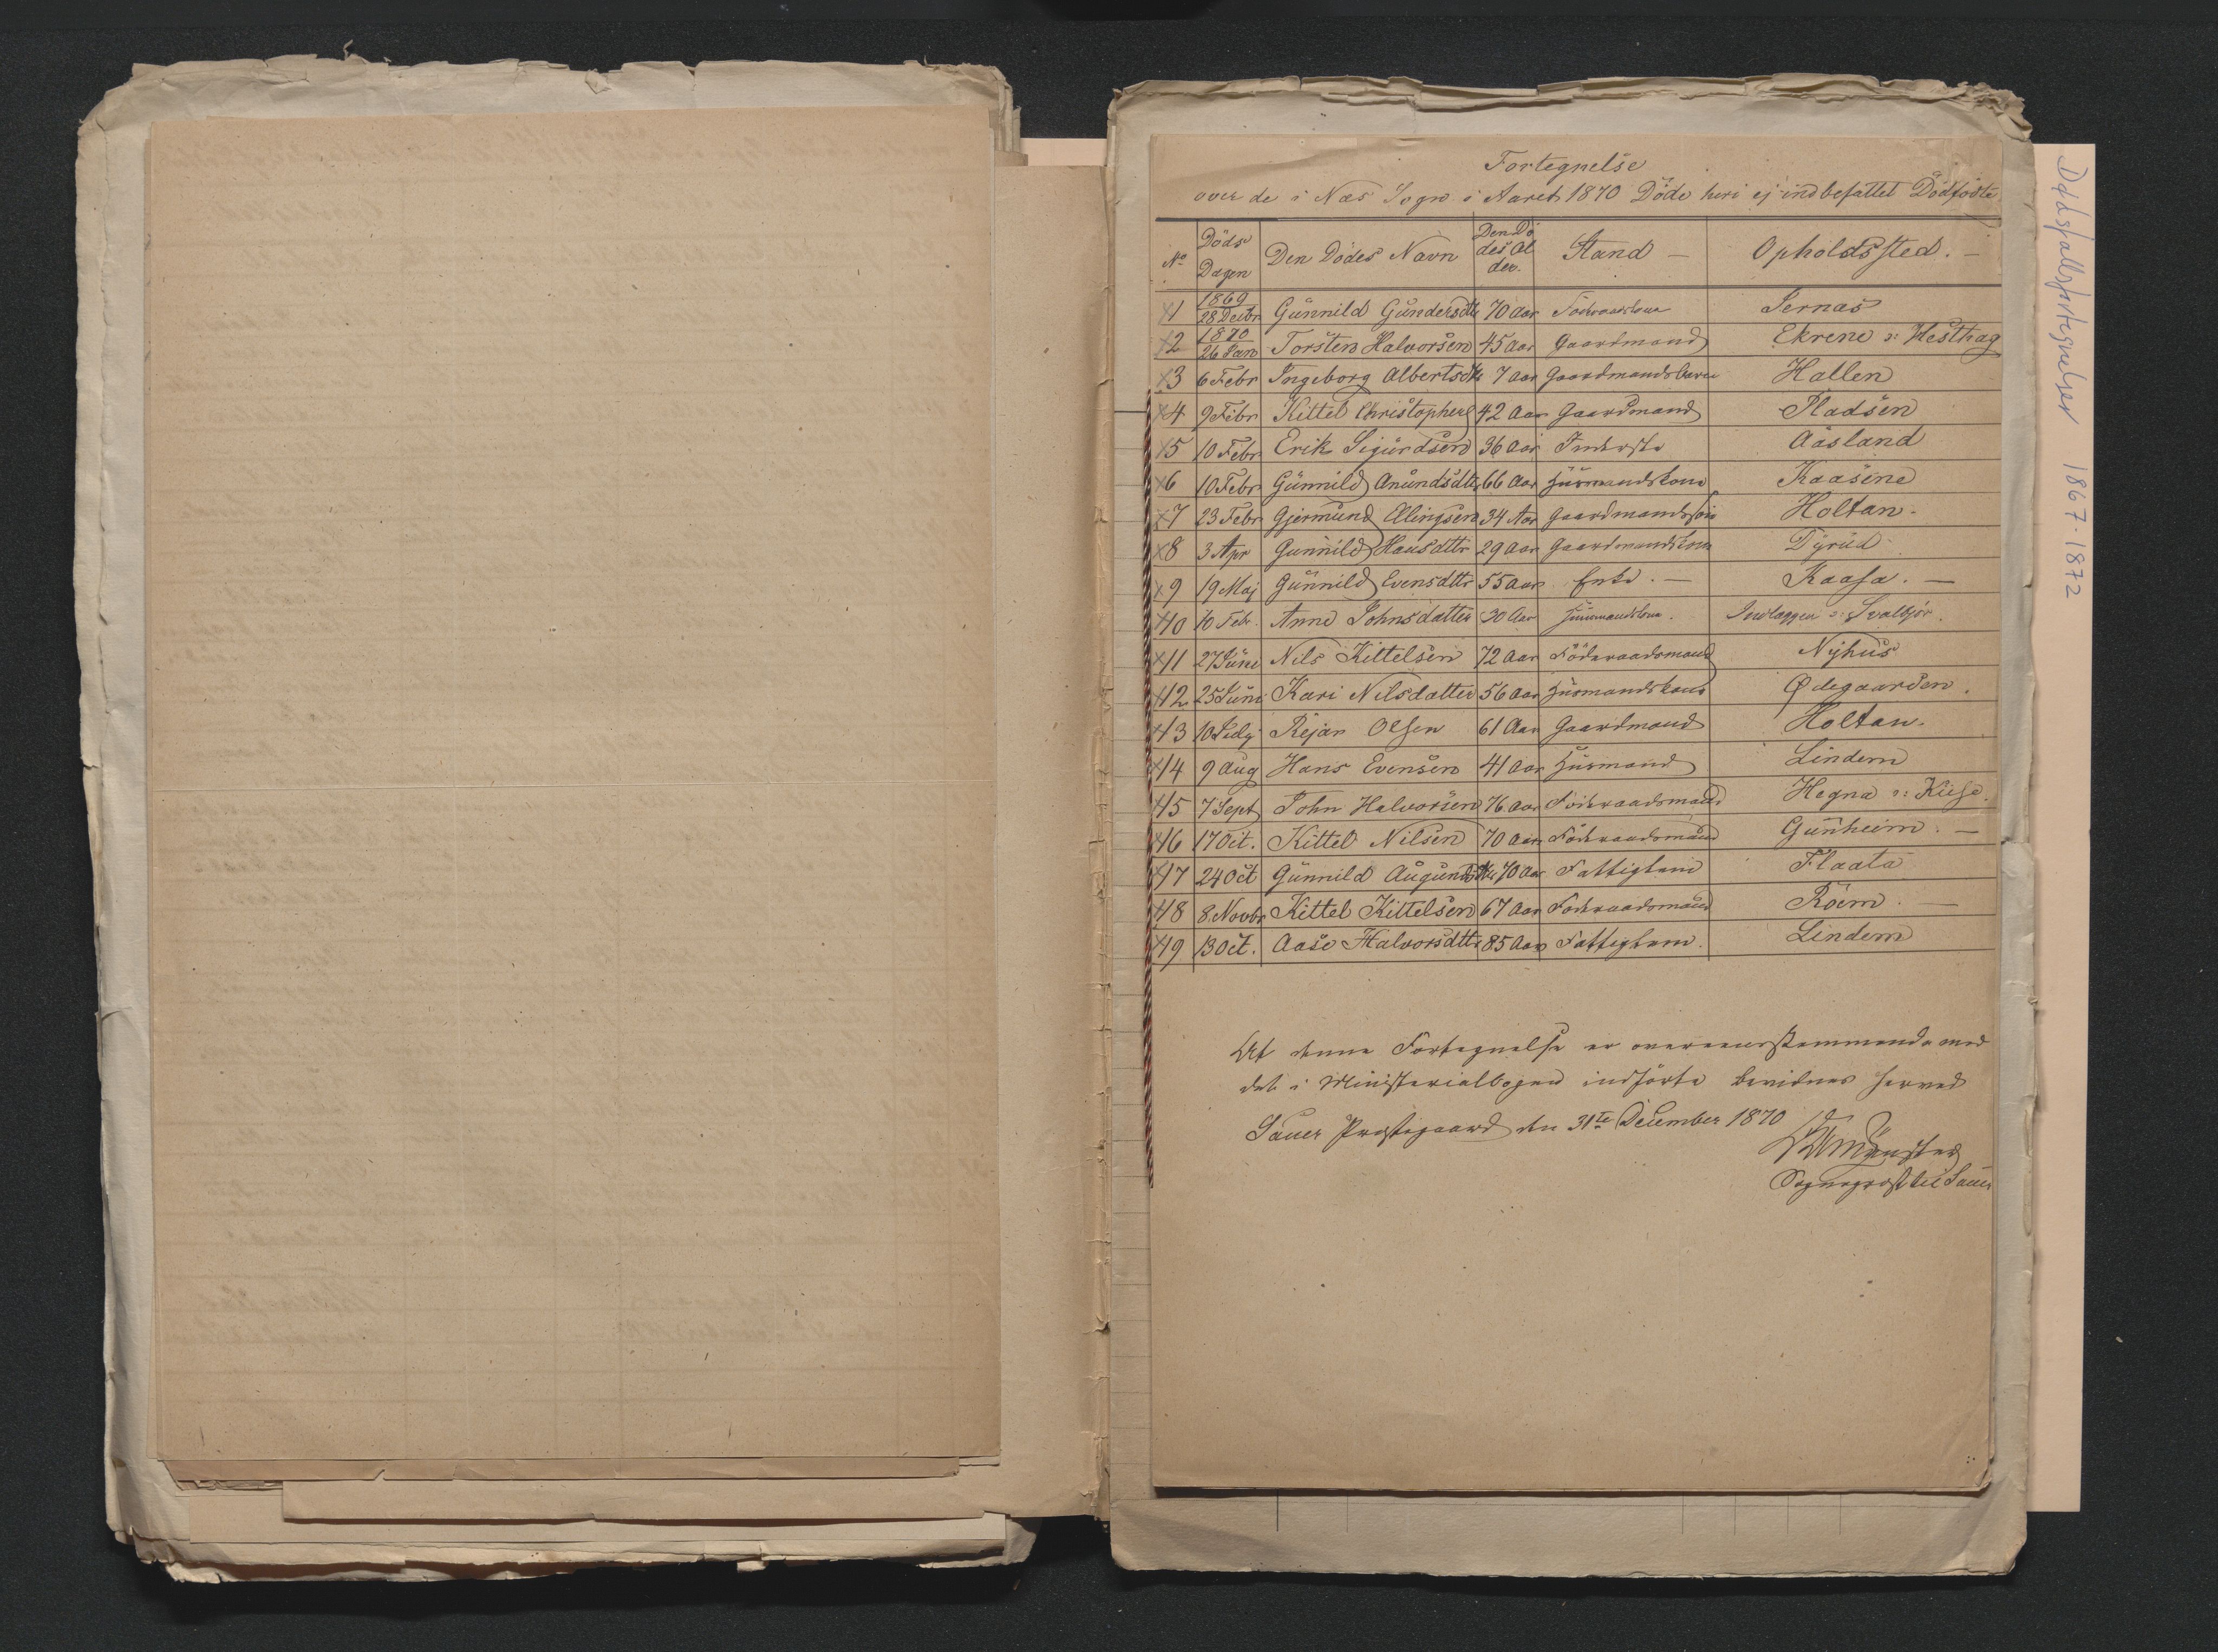 Fortegnelse
over de i Næs Sogn i Aaret 1870 Døde heri ej indbefattet Dødfødte
No Døds Dagen Den Dødes Navn Den Dødes Alder. Stand — Opholdssted. —
1 1869 28 Decbr Gunnild Gundersdtr 70 Aar Föderaadskone Jernas
2 1870 26 Jan Torsten Halvorsen 45 Aar Gaardmand Ekrene ɔ: Hesthag
3 6 Febr Ingeborg Albertsdtr 7 Aar Gaardmandsbarn Hallen
4 9 Febr Kittel Christophers 42 Aar Gaardmand Pladsen
5 10 Febr Erik Sigurdsen 36 Aar Inderste Aasland
6 10 Febr Gunnild Anundsdtr 66 Aar Husmandskone Kaasene
7 23 Febr Gjermund Ellingsen 34 Aar Gaardmandssøn Holtan -
8 3 Apr Gunnild Hansdttr 29 Aar Gaardmandskone Dyrud
9 19 Maj Gunnild Evensdttr 55 Aar Enke. — Kaasa. —
10 10 Febr. Anne Johnsdatter 30 Aar Husmandskone. Indlæggen ɔ: Svalbjør.
11 27 Juni Nils Kittelsen 72 Aar Föderaadsmand Nyhus
12 25 Juni Kari Nilsdatter 56 Aar Husmandskone Ødegaarden.
13 10 July Rejar Olsen 61 Aar Gaardmand Holtan.
14 9 Aug Hans Evensen 41 Aar Husmand Lindem
15 7 Sept John Halvorsen 76 Aar Föderaadsmand Hegna ɔ: Kiise.
16 17 Oct. Kittel Nilsen 70 Aar Föderaadsmand Gunheim. —
17 24 Oct Gunnild Augundsdtr 70 Aar Fattiglem Flaata
18 8 Novbr Kittel Kittelsen 67 Aar Föderaadsmand Röim. —
19 13 Oct. Aase Halvorsdttr 85 Aar Fattiglem. Lindem
At denne Fortegnelse er overeensstemmende med
det i Ministerialbogen indførte bevidnes herved
Sauer Prestegaard den 31te December 1870
Münster
Sogneprest til Sauer
Dødsfallsfortegnelser 1867-1872